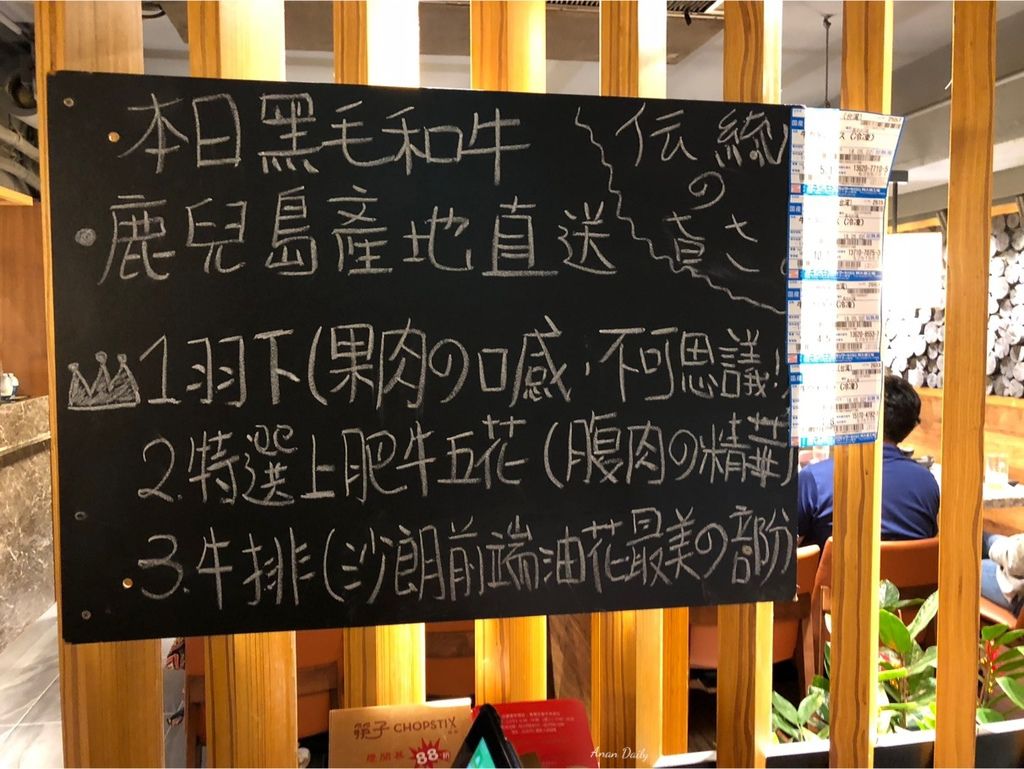 本日黑毛和牛
鹿兒島產地直送
伝統
の
直さ
1.羽下(果肉の口感,不可思議!
2.特選上肥牛五花(腹肉の精華)
3.牛排(沙朗前端油花最美の部份
筷子 CHOPSTIX
88
Anan Daily